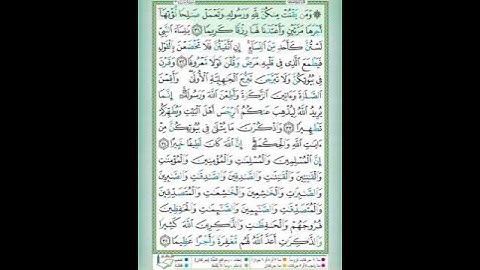 ۞ وَمَن يَقْنُتْ مِنكُنَّ لِلَّهِ وَرَسُولِهِ وَتَعْمَلْ صَالِحًا نُّؤْتِهَا
أَجْرَهَا مَرَّتَيْنِ وَأَعْتَدْنَا لَهَا رِزْقًا كَرِيمًا ٣١ يَانِسَاءَ النَّبِيِّ
لَسْتُنَّ كَأَحَدٍ مِّنَ النِّسَاءِ إِنِ اتَّقَيْتُنَّ فَلَا تَخْضَعْنَ بِالْقَوْلِ
فَيَطْمَعَ الَّذِي فِي قَلْبِهِ مَرَضٌ وَقُلْنَ قَوْلًا مَّعْرُوفًا ٣٢ وَقَرْنَ
فِي بُيُوتِكُنَّ وَلَا تَبَرَّجْنَ تَبَرُّجَ الْجَاهِلِيَّةِ الْأُولَىٰ وَأَقِمْنَ
الصَّلَاةَ وَآتِينَ الزَّكَاةَ وَأَطِعْنَ اللَّهَ وَرَسُولَهُ إِنَّمَا
يُرِيدُ اللَّهُ لِيُذْهِبَ عَنكُمُ الرِّجْسَ أَهْلَ الْبَيْتِ وَيُطَهِّرَكُمْ
تَطْهِيرًا ٣٣ وَاذْكُرْنَ مَا يُتْلَىٰ فِي بُيُوتِكُنَّ مِنْ
آيَاتِ اللَّهِ وَالْحِكْمَةِ إِنَّ اللَّهَ كَانَ لَطِيفًا خَبِيرًا ٣٤
إِنَّ الْمُسْلِمِينَ وَالْمُسْلِمَاتِ وَالْمُؤْمِنِينَ وَالْمُؤْمِنَاتِ
وَالْقَانِتِينَ وَالْقَانِتَاتِ وَالصَّادِقِينَ وَالصَّادِقَاتِ وَالصَّابِرِينَ
وَالصَّابِرَاتِ وَالْخَاشِعِينَ وَالْخَاشِعَاتِ وَالْمُتَصَدِّقِينَ
وَالْمُتَصَدِّقَاتِ وَالصَّائِمِينَ وَالصَّائِمَاتِ وَالْحَافِظِينَ
فُرُوجَهُمْ وَالْحَافِظَاتِ وَالذَّاكِرِينَ اللَّهَ كَثِيرًا
وَالذَّاكِرَاتِ أَعَدَّ اللَّهُ لَهُم مَّغْفِرَةً وَأَجْرًا عَظِيمًا ٣٥